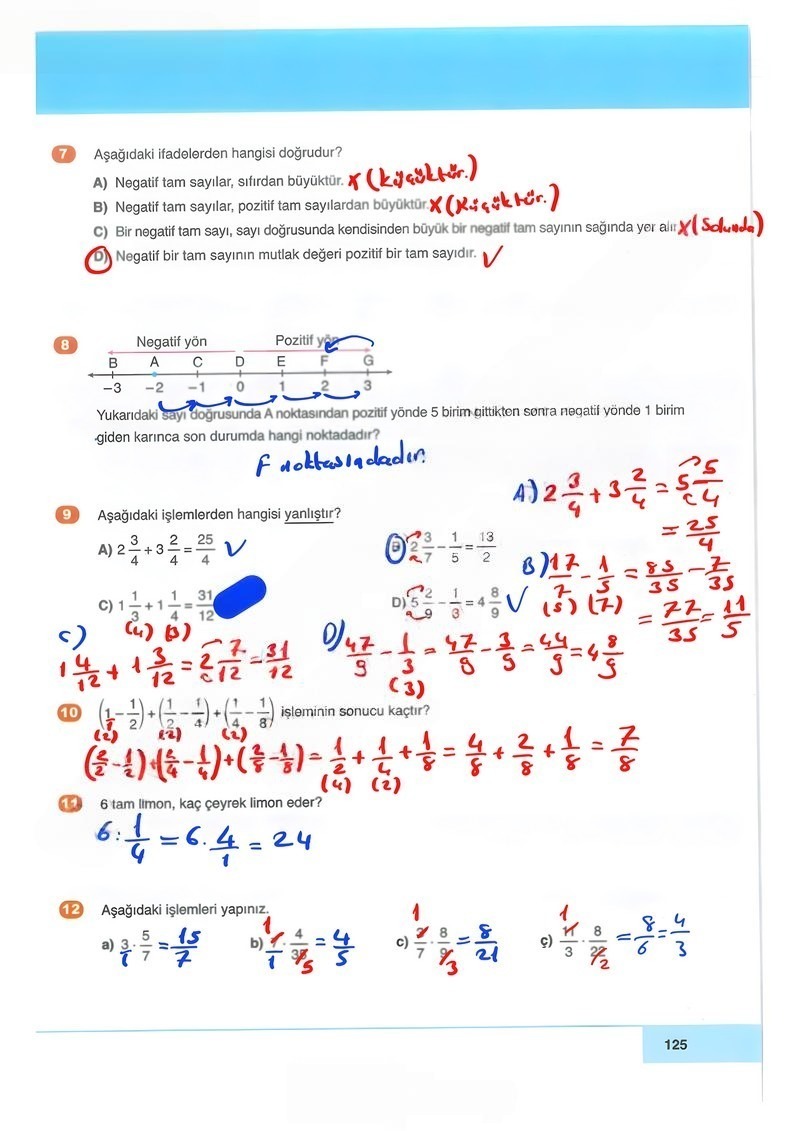 7 Aşağıdaki ifadelerden hangisi doğrudur?
A) Negatif tam sayılar, sıfırdan büyüktür. x (küçüktür.)
B) Negatif tam sayılar, pozitif tam sayılardan büyüktür. x (küçüktür.)
C) Bir negatif tam sayı, sayı doğrusunda kendisinden büyük bir negatif tam sayının sağında yer alır x (Solunda)
D) Negatif bir tam sayının mutlak değeri pozitif bir tam sayıdır. ✓
8 Negatif yön Pozitif yön
B A C D E F G
−3 −2 −1 0 1 2 3
Yukarıdaki sayı doğrusunda A noktasından pozitif yönde 5 birim gittikten sonra negatif yönde 1 birim
giden karınca son durumda hangi noktadadır?
F noktasındadır.
9 Aşağıdaki işlemlerden hangisi yanlıştır?
A) 2 3/4 + 3 2/4 = 25/4 ✓
B) 2 3/7 − 1/5 = 13/2
C) 1 1/3 + 1 1/4 = 31/12
D) 5 2/9 − 1/3 = 4 8/9 ✓
A) 2 3/4 + 3 2/4 = 5 5/4
= 25/4
B) 17/7 − 1/5 = 85/35 − 7/35
(5) (7) = 77/35 = 11/5
(4) (3)
C) 1 4/12 + 1 3/12 = 2 7/12 = 31/12
D) 47/9 − 1/3 = 47/9 − 3/9 = 44/9 = 4 8/9
(3)
10 (1/1 − 1/2) + (1/2 − 1/4) + (1/4 − 1/8) işleminin sonucu kaçtır?
(2) (2) (2)
(2/2 − 1/2) + (2/4 − 1/4) + (2/8 − 1/8) = 1/2 + 1/4 + 1/8 = 4/8 + 2/8 + 1/8 = 7/8
(4) (2)
11 6 tam limon, kaç çeyrek limon eder?
6 : 1/4 = 6 . 4/1 = 24
12 Aşağıdaki işlemleri yapınız.
a) 3/1 · 5/7 = 15/7
b) 7/1 · 4/35 = 4/5
1
5
c) 3/7 · 8/9 = 8/21
1
3
ç) 11/3 · 8/22 = 8/6 = 4/3
1
2
125